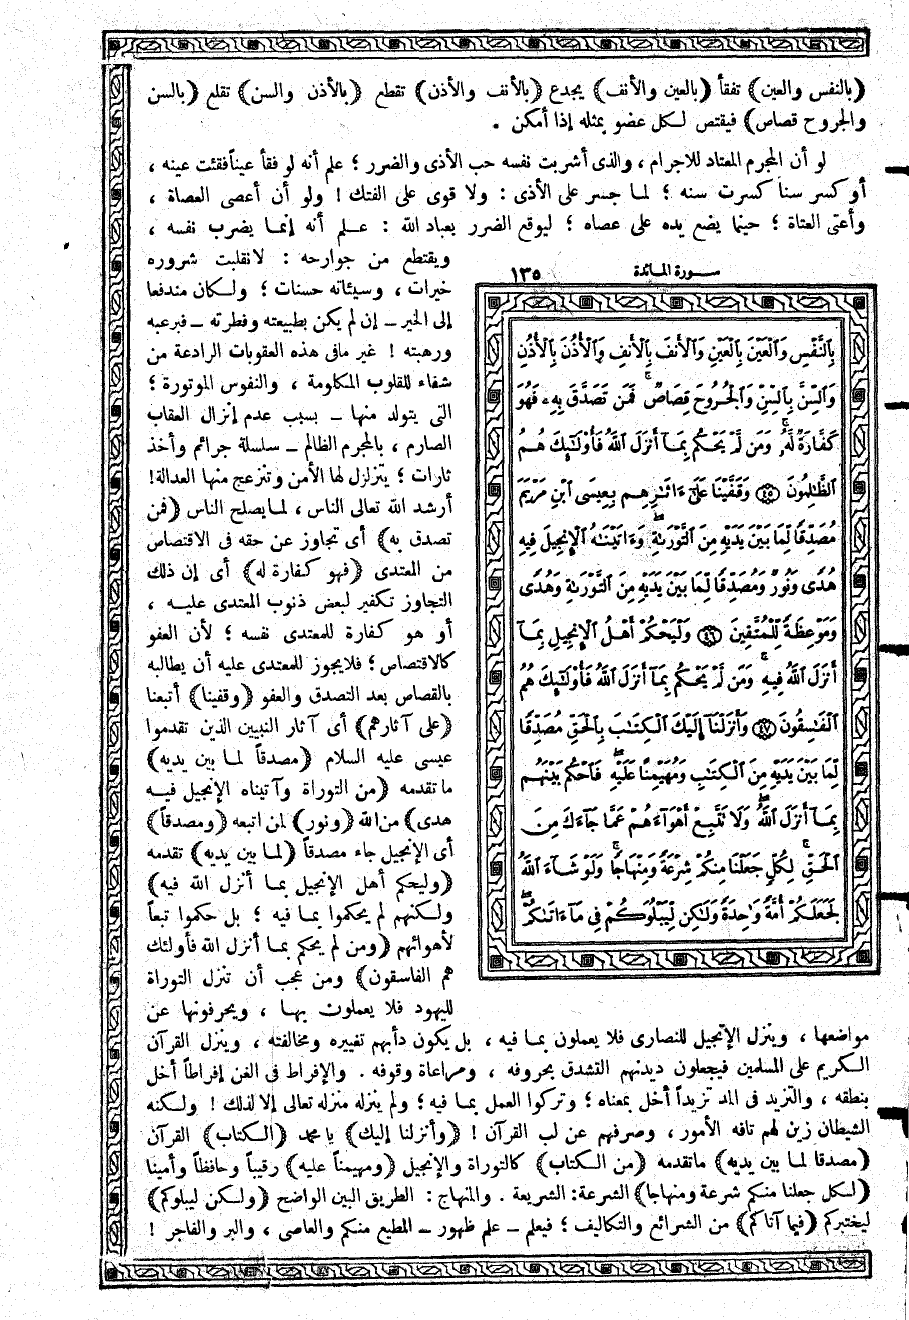 (بالنفس والعين) تفقأ (بالعين والأنف) يجدع (بالأنف والأذن) تقطع (بالأذن والسن) تقلع (بالسن
والجروح قصاص) فيقتص لكل عضو بمثله إذا أمكن .
لو أن المجرم المعتاد للاجرام ، والذى أشربت نفسه حب الأذى والضرر ؛ علم أنه لو فقأ عيناً فقئت عينه ،
أو كسر سناً كسرت سنه ؛ لما جسر على الأذى : ولا قوى على الفتك ! ولو أن أعصى العصاة ،
وأعتى العتاة ؛ حينما يضع يده على عصاه ؛ ليوقع الضرر بعباد الله : علم أنه إنما يضرب نفسه ،
ويقتطع من جوارحه : لانقلبت شروره
خيرات ، وسيئاته حسنات ؛ ولكان مندفعا
إلى الخير – إن لم يكن بطبيعته وفطرته – فبرعبه
ورهبته ! غير مافى هذه العقوبات الرادعة من
شفاء للقلوب المكلومة ، والنفوس الموتورة ؛
التى يتولد منها – بسبب عدم إنزال العقاب
الصارم ، بالمجرم الظالم – سلسلة جرائم وأخذ
ثارات ؛ يتزلزل لها الأمن وتنزعج منها العدالة!
أرشد الله تعالى الناس ، لما يصلح الناس (فمن
تصدق به) أى تجاوز عن حقه فى الاقتصاص
من المعتدى (فهو كفارة له) أى إن ذلك
التجاوز تكفير لبعض ذنوب المعتدى عليه ،
أو هو كفارة للمعتدى نفسه ؛ لأن العفو
كالاقتصاص ؛ فلا يجوز للمعتدى عليه أن يطالبه
بالقصاص بعد التصدق والعفو (وقفينا) أتبعنا
(على آثارهم) أى آثار النبيين الذين تقدموا
عيسى عليه السلام (مصدقاً لما بين يديه)
ما تقدمه (من التوراة وآتيناه الإنجيل فيه
هدى) من الله (ونور) لمن اتبعه (ومصدقاً)
أى الإنجيل جاء مصدقاً (لما بين يديه) تقدمه
(وليحكم أهل الإنجيل بما أنزل الله فيه)
ولكنهم لم يحكموا بما فيه ؛ بل حكموا تبعاً
لأهوائهم (ومن لم يحكم بما أنزل الله فأولئك
هم الفاسقون) ومن عجب أن تنزل التوراة
لليهود فلا يعملون بها ، ويحرفونها عن
سورة المائدة ١٣٥
بِٱلنَّفْسِ وَٱلْعَيْنَ بِٱلْعَيْنِ وَٱلْأَنفَ بِٱلْأَنفِ وَٱلْأُذُنَ بِٱلْأُذُنِ
وَٱلسِّنَّ بِٱلسِّنِّ وَٱلْجُرُوحَ قِصَاصٌ ۚ فَمَن تَصَدَّقَ بِهِۦ فَهُوَ
كَفَّارَةٌ لَّهُۥ ۚ وَمَن لَّمْ يَحْكُم بِمَآ أَنزَلَ ٱللَّهُ فَأُوْلَٰٓئِكَ هُمُ
ٱلظَّٰلِمُونَ ٤٥ وَقَفَّيْنَا عَلَىٰٓ ءَاثَٰرِهِم بِعِيسَى ٱبْنِ مَرْيَمَ
مُصَدِّقًا لِّمَا بَيْنَ يَدَيْهِ مِنَ ٱلتَّوْرَىٰةِ ۖ وَءَاتَيْنَٰهُ ٱلْإِنجِيلَ فِيهِ
هُدًى وَنُورٌ وَمُصَدِّقًا لِّمَا بَيْنَ يَدَيْهِ مِنَ ٱلتَّوْرَىٰةِ وَهُدًى
وَمَوْعِظَةً لِّلْمُتَّقِينَ ٤٦ وَلْيَحْكُمْ أَهْلُ ٱلْإِنجِيلِ بِمَآ
أَنزَلَ ٱللَّهُ فِيهِ ۚ وَمَن لَّمْ يَحْكُم بِمَآ أَنزَلَ ٱللَّهُ فَأُوْلَٰٓئِكَ هُمُ
ٱلْفَٰسِقُونَ ٤٧ وَأَنزَلْنَآ إِلَيْكَ ٱلْكِتَٰبَ بِٱلْحَقِّ مُصَدِّقًا
لِّمَا بَيْنَ يَدَيْهِ مِنَ ٱلْكِتَٰبِ وَمُهَيْمِنًا عَلَيْهِ ۖ فَٱحْكُم بَيْنَهُم
بِمَآ أَنزَلَ ٱللَّهُ ۖ وَلَا تَتَّبِعْ أَهْوَآءَهُمْ عَمَّا جَآءَكَ مِنَ
ٱلْحَقِّ ۚ لِكُلٍّ جَعَلْنَا مِنكُمْ شِرْعَةً وَمِنْهَاجًا ۚ وَلَوْ شَآءَ ٱللَّهُ
لَجَعَلَكُمْ أُمَّةً وَٰحِدَةً وَلَٰكِن لِّيَبْلُوَكُمْ فِى مَآ ءَاتَىٰكُمْ ۖ
مواضعها ، وينزل الإنجيل للنصارى فلا يعملون بما فيه ، بل يكون دأبهم تغييره ومخالفته ، وينزل القرآن
الكريم على المسلمين فيجعلون ديدنهم التشدق بحروفه ، ومراعاة وقوفه . والإفراط فى الغن إفراطاً أخل
بنطقه ، والتزيد فى المد تزيداً أخل بمعناه ؛ وتركوا العمل بما فيه ؛ ولم ينزله منزله تعالى إلا لذلك ! ولكنه
الشيطان زين لهم تافه الأمور ، وصرفهم عن لب القرآن ! (وأنزلنا إليك) يا محمد (الكتاب) القرآن
(مصدقا لما بين يديه) ماتقدمه (من الكتاب) كالتوراة والإنجيل (ومهيمناً عليه) رقيباً وحافظاً وأمينا
(لكل جعلنا منكم شرعة ومنهاجا) الشرعة: الشريعة . والمنهاج : الطريق البين الواضح (ولكن ليبلوكم)
ليختبركم (فيما آتاكم) من الشرائع والتكاليف ؛ فيعلم – علم ظهور – المطيع منكم والعاصى ، والبر والفاجر !